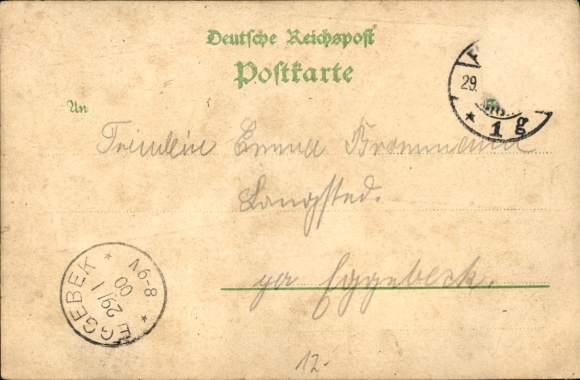 Deutsche Reichspost
Postkarte
29.
* 1 g
An
Fräulein Emma Brommann
Langsted.
per Eggebeck.
EGGEBEK
29/1
00
8-9V
12.-